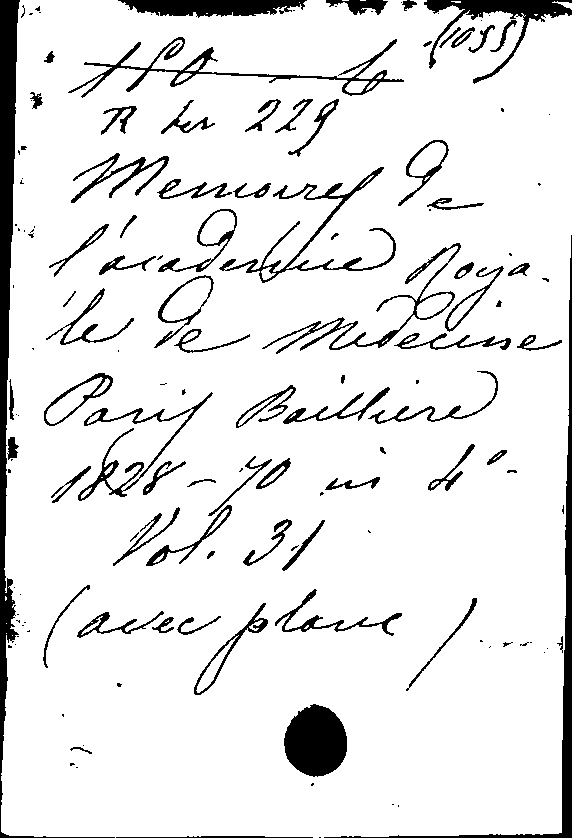 (1055)
180 6
R ter 229
Memoires de
l'academie Roya-
le de Medecine
Paris Bailliere
1828-70 in 4°-
Vol. 31
(avec planc)